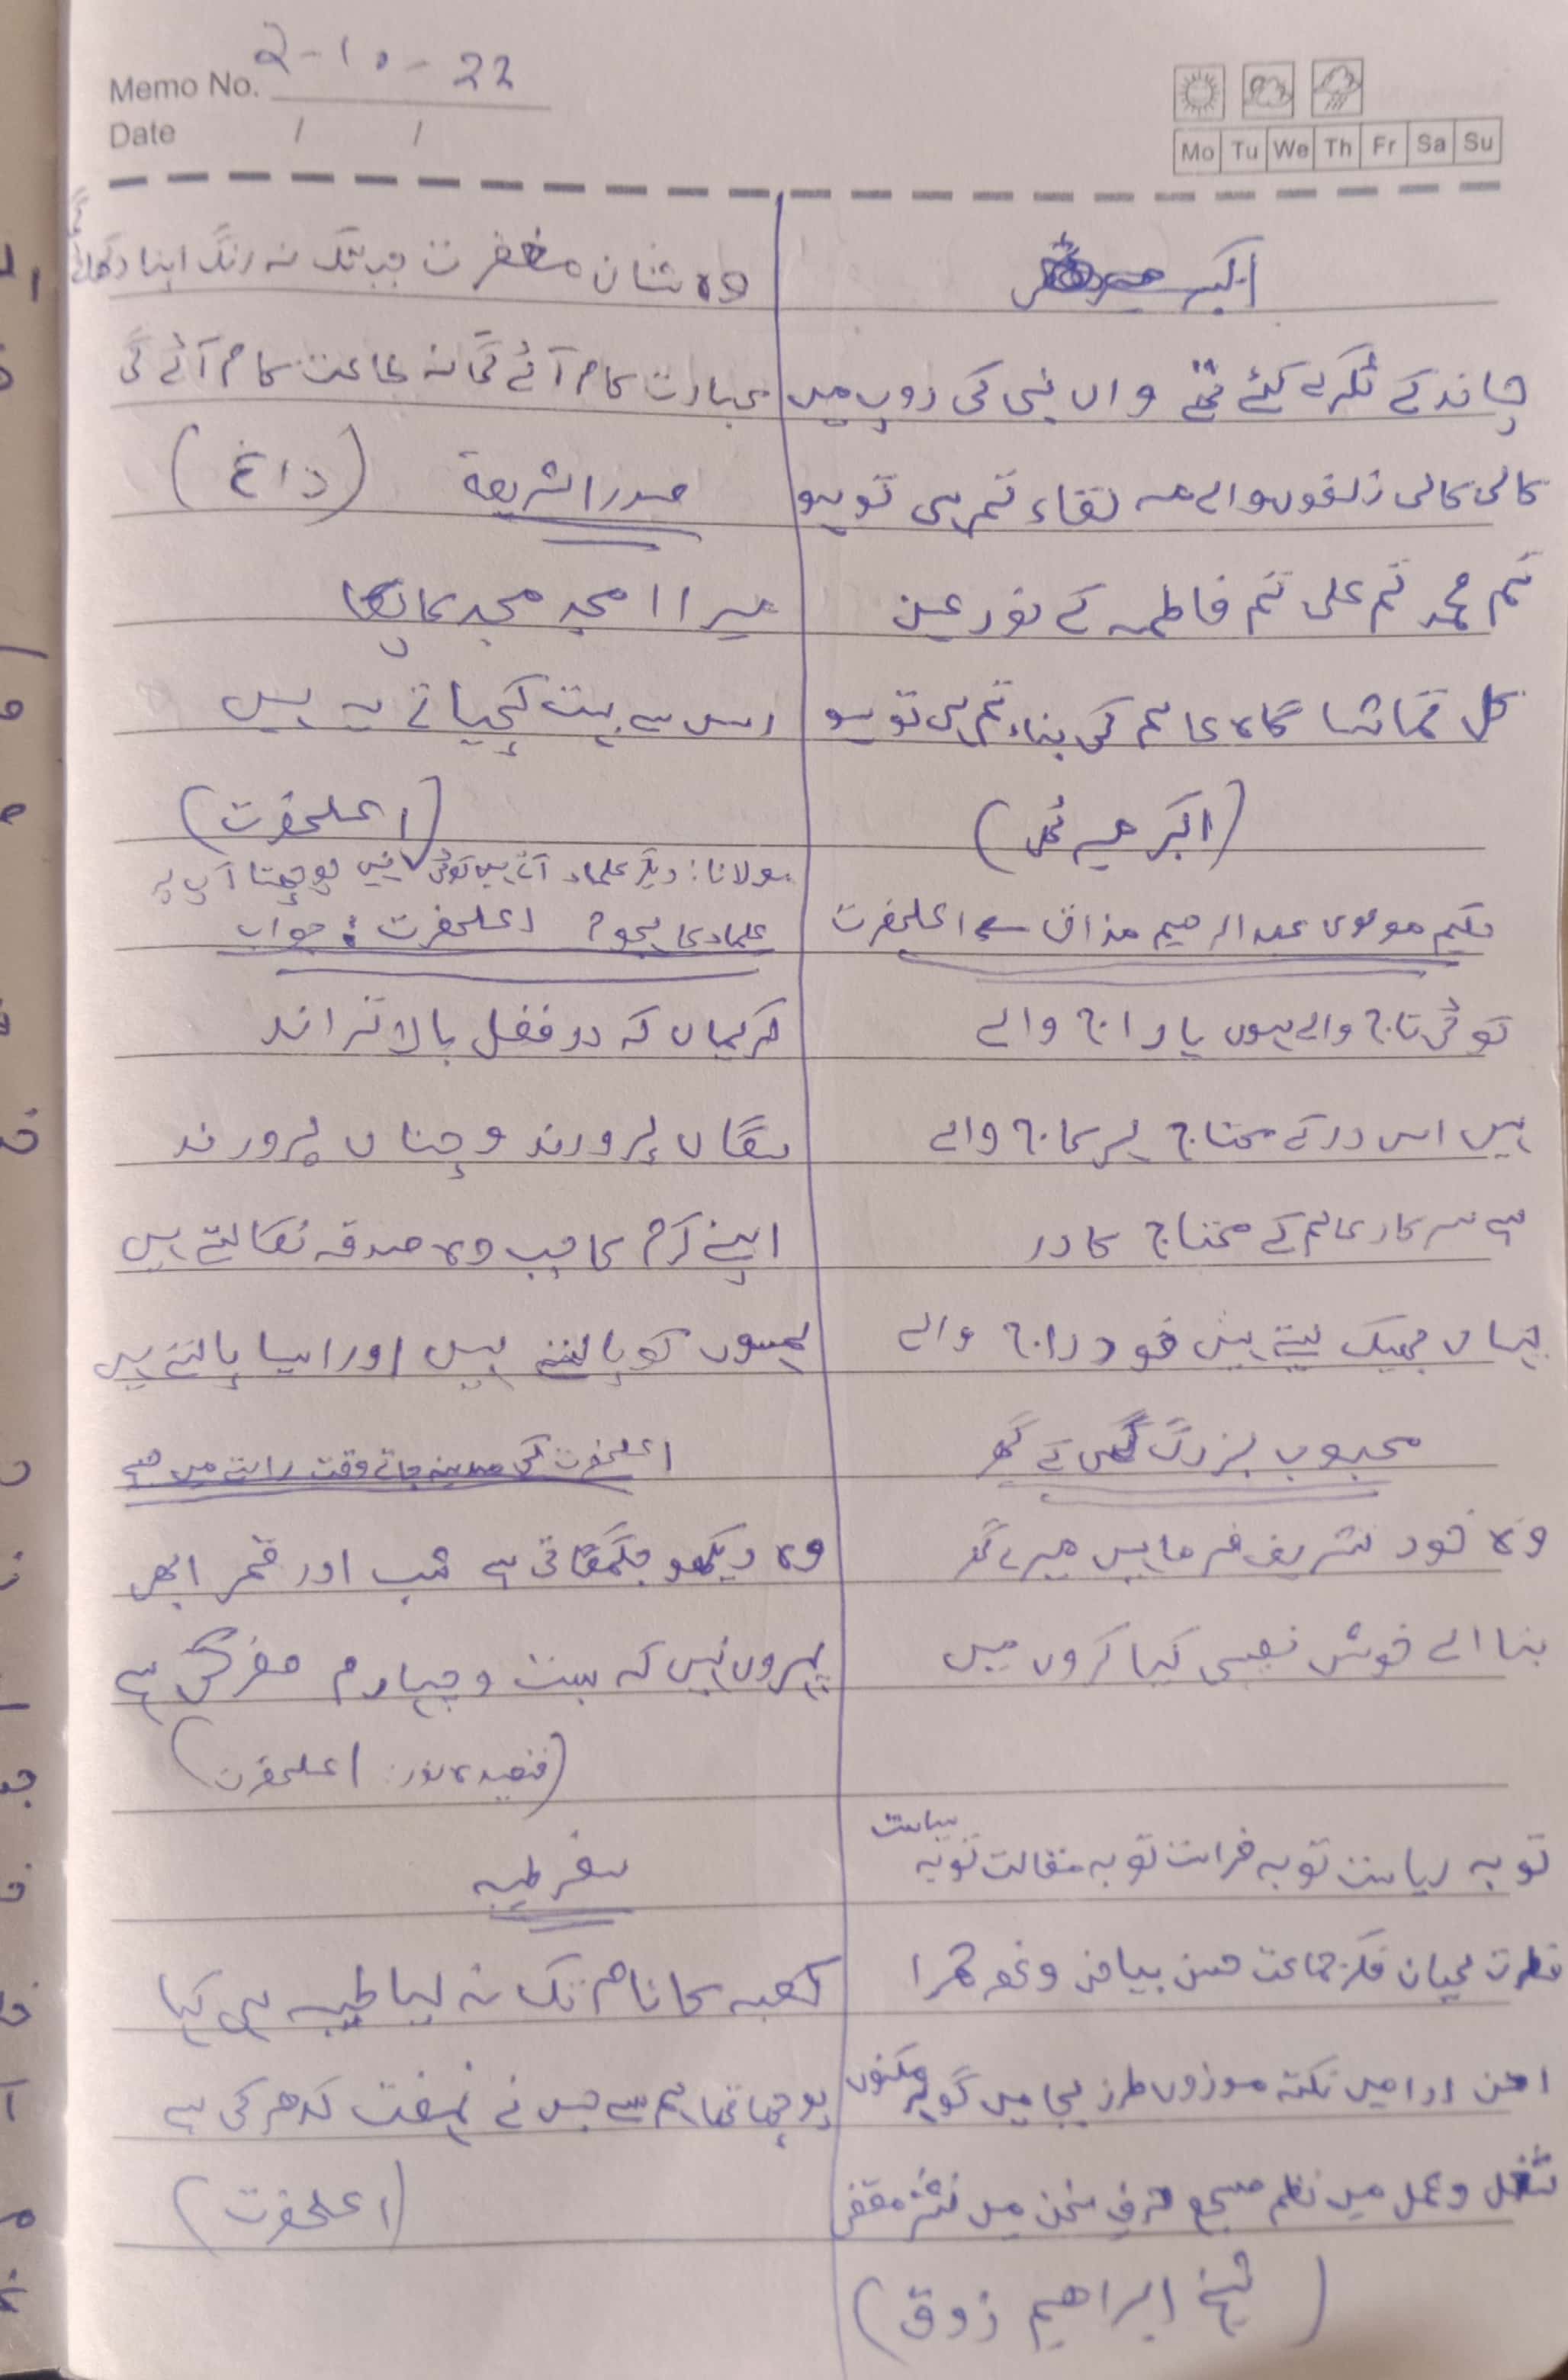 Memo No. 2-10-22
Date / /
Mo Tu We Th Fr Sa Su
اکبر میرٹھی
چاند کے ٹکرے کئے تھے واں نبی کی روپ میں
کالی کالی زلفوں والے مہ لقاء تم ہی تو ہو
تم محمد تم علی تم فاطمہ کے نور عین
کل تماشا گاہ عالم کی بناء تم ہی تو ہو
(اکبر میرٹھی)
حکیم مولوی عبد الرحیم مذاق سے اعلحضرت
کوئی تاج والے ہوں یا راج والے
ہیں اس در کے محتاج ہر کاج والے
ہے سرکار عالم کے محتاج کا در
یہاں بھیک لیتے ہیں خود راج والے
محبوب بزرگ کسی کے گھر
وہ خود تشریف فرما ہیں میرے گھر
بتا اے خوش نصیبی کیا کروں میں
توبہ ریاست توبہ فراست توبہ متقالت توبہ سیاست
فطرت فکر جماعت حسن
امن ادا میں نکتہ موزوں طرز میں گوہر مکنوں
شغل و عمل میں نظم مسجع حرف سخن میں نثر مقفی
(شیخ ابراھیم ذوق)
وہ شان مغفرت جب تک نہ رنگ اپنا دکھائے گی
عبادت کام آئے گی نہ طاعت کام آئے گی
(داغ)
صدر الشریعہ
میرا امجد مجد کا پکا
اس سے بہت کچیاتے یہ ہیں
(اعلحضرت)
مولانا: دیگر علماء آتے ہیں کوئی نہیں پوچھتا آپ پہ
علماء کا ہجوم اعلحضرت: جواب
کریماں کہ در فضل بالا تر اند
سگاں پرورند و چناں پرورند
اپنے کرم کا جب وہ صدقہ نکالتے ہیں
ہمسوں کو پالتے ہیں اور ایسا پالتے ہیں
اعلحضرت کی مدینہ جاتے وقت راستے میں
وہ دیکھو جگمگاتی ہے شب اور قمر ابھی
پہروں نہیں کہ بست و چہارم صفر کی ہے
(قصیدہ نور: اعلحضرت)
سفر طیبہ
کعبہ کا نام تک نہ لیا طیبہ ہی کہا
پوچھا تھا ہم سے جس نے نہضت کدھر کی ہے
(اعلحضرت)